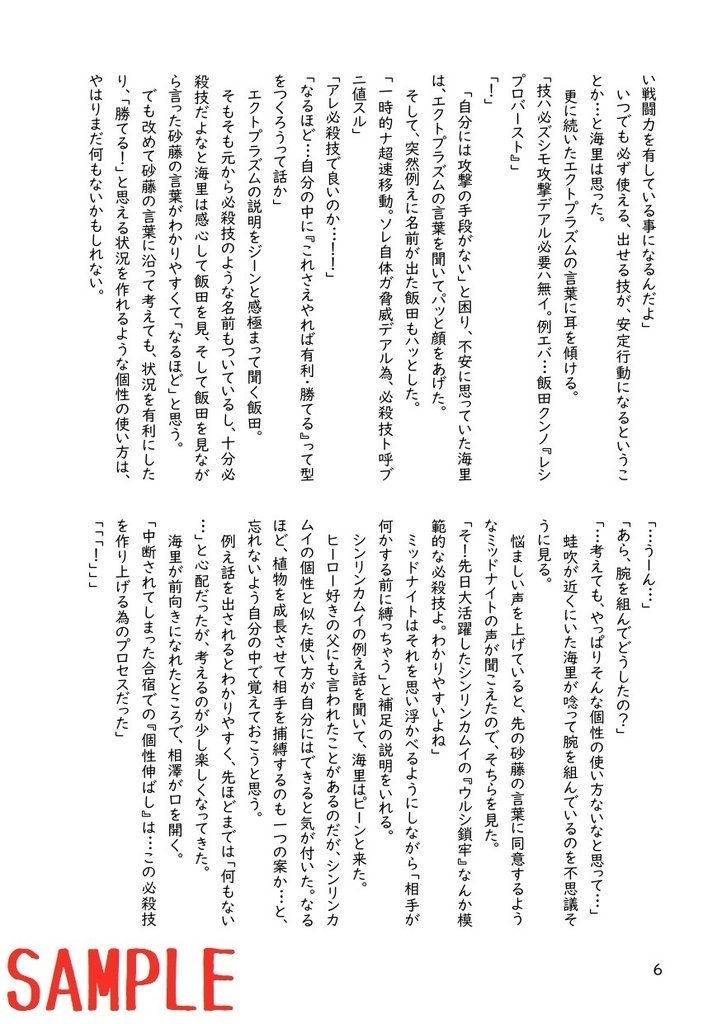 い戦闘力を有している事になるんだよ」
　いつでも必ず使える、出せる技が、安定行動になるというこ
とか…と海里は思った。
　更に続いたエクトプラズムの言葉に耳を傾ける。
「技ハ必ズシモ攻撃デアル必要ハ無イ。例エバ…飯田クンノ『レシ
プロバースト』」
「！」
　「自分には攻撃の手段がない」と困り、不安に思っていた海里
は、エクトプラズムの言葉を聞いてパッと顔をあげた。
　そして、突然例えに名前が出た飯田もハッとした。
「一時的ナ超速移動。ソレ自体ガ脅威デアル為、必殺技ト呼ブ
ニ値スル」
「アレ必殺技で良いのか…！！」
「なるほど…自分の中に『これさえやれば有利・勝てる』って型
をつくろうって話か」
　エクトプラズムの説明をジーンと感極まって聞く飯田。
　そもそも元から必殺技のような名前もついているし、十分必
殺技だよなと海里は感心して飯田を見、そして飯田を見なが
ら言った砂藤の言葉がわかりやすくて「なるほど」と思う。
　でも改めて砂藤の言葉に沿って考えても、状況を有利にした
り、「勝てる！」と思える状況を作れるような個性の使い方は、
やはりまだ何もないかもしれない。
「…うーん…」
「あら、腕を組んでどうしたの？」
「…考えても、やっぱりそんな個性の使い方ないなと思って…」
　蛙吹が近くにいた海里が唸って腕を組んでいるのを不思議そ
うに見る。
　悩ましい声を上げていると、先の砂藤の言葉に同意するよう
なミッドナイトの声が聞こえたので、そちらを見た。
「そ！先日大活躍したシンリンカムイの『ウルシ鎖牢』なんか模
範的な必殺技よ。わかりやすいよね」
　ミッドナイトはそれを思い浮かべるようにしながら「相手が
何かする前に縛っちゃう」と補足の説明をいれる。
　シンリンカムイの例え話を聞いて、海里はピーンと来た。
　ヒーロー好きの父にも言われたことがあるのだが、シンリンカ
ムイの個性と似た使い方が自分にはできると気が付いた。なる
ほど、植物を成長させて相手を捕縛するのも一つの案か…と、
忘れないよう自分の中で覚えておこうと思う。
　例え話を出されるとわかりやすく、先ほどまでは「何もない
…」と心配だったが、考えるのが少し楽しくなってきた。
　海里が前向きになれたところで、相澤が口を開く。
「中断されてしまった合宿での『個性伸ばし』は…この必殺技
を作り上げる為のプロセスだった」
「「「！」」」
6
SAMPLE